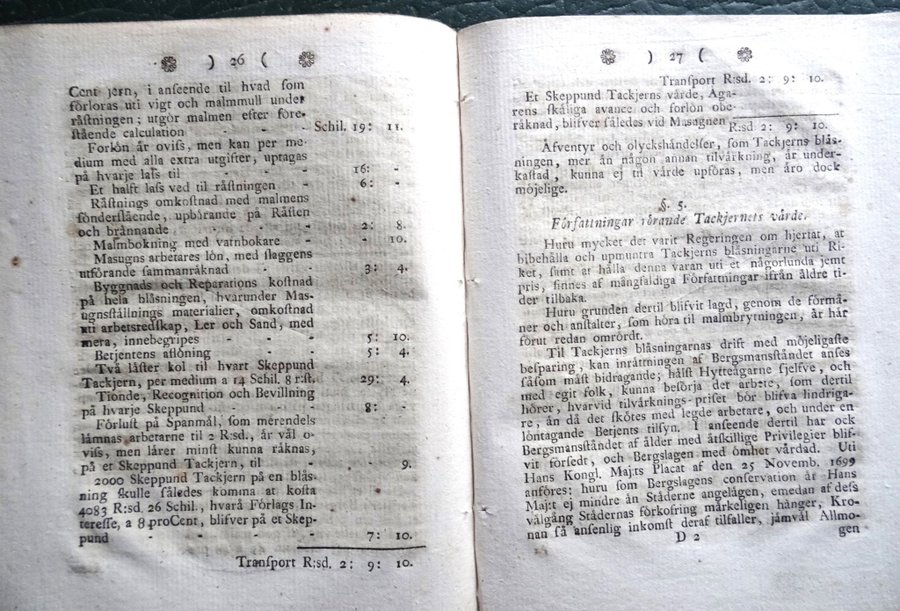 ) 26 (
Cent jern, i anseende til hvad som
förloras uti vigt och malmmull under
råstningen; utgör malmen efter före-
stående calculation - - - Schil. 19: 11.
Forlön är oviss, men kan per me-
dium med alla extra utgifter, uptagas
på hvarje lass til - - - 16: -
Et halft lass ved til råstningen - 6: -
Råstnings omkostnad med malmens
sönderslående, upbärande på Råsten
och brännande - - - 2: 8.
Malmbokning med vatnbokare - - 10.
Masugns arbetares lön, med slaggens
utförande sammanräknad - - 3: 4.
Byggnads och Reparations kostnad
på hela blåsningen, hvarunder Mas-
ugnsställnings materialier, omkostnad
uti arbetsredskap, Ler och Sand, med
mera, innebegripes - - 5: 10.
Betjentens aflöning - - 5: 4.
Två låster kol til hvart Skeppund
Tackjern, per medium a 14 Schil. 8 r:st. 29: 4.
Tionde, Recognition och Bevillning
på hvarje Skeppund - - - 8: -
Förlust på Spanmål, som merendels
lämnas arbetarne til 2 R:sd., är väl o-
viss, men lärer minst kunna räknas,
på et Skeppund Tackjern, til - - 9.
2000 Skeppund Tackjern på en blås-
ning skulle således komma at kosta
4083 R:sd. 26 Schil., hvarå Förlags In-
teresse, a 8 proCent, blifver på et Skep-
pund - - - - 7: 10.
Transport R:sd. 2: 9: 10.
) 27 (
Transport R:sd. 2: 9: 10.
Et Skeppund Tackjerns värde, Äga-
rens skäliga avance och förlön obe-
räknad, blifver således vid Masugnen R:sd 2: 9: 10.
Äfventyr och olyckshändelser, som Tackjerns blås-
ningen, mer än någon annan tilvärkning, är under-
kastad, kunna ej til värde upföras, men äro dock
möjelige.
§. 5.
Författningar rörande Tackjernets värde.
Huru mycket det varit Regeringen om hjertat, at
bibehålla och upmuntra Tackjerns blåsningarne uti Ri-
ket, samt at hålla denna varan uti et någorlunda jemt
pris, finnes af mångfaldiga Författningar ifrån äldre ti-
der tilbaka.
Huru grunden dertil blifvit lagd, genom de förmå-
ner och anstalter, som höra til malmbrytningen, är här
förut redan omrördt.
Til Tackjerns blåsningarnas drift med möjeligaste
besparing, kan inrättningen af Bergsmansståndet anses
såsom mäst bidragande; hälst Hytteägarne sjelfve, och
med egit folk, kunna besörja det arbete, som dertil
hörer, hvarvid tilvärknings-priset bör blifva lindriga-
re, än då det skötes med legde arbetare, och under en
löntagande Betjents tilsyn. I anseende dertil har ock
Bergsmansståndet af ålder med åtskillige Privilegier blif-
vit försedt, och Bergslagen med ömhet vårdad. Uti
Hans Kongl. Maj:ts Placat af den 25 Novemb. 1699
anföres: huru som Bergslagens conservation är Hans
Maj:t ej mindre än Städerne angelägen, emedan af dess
välgång Städernas förkofring märkeligen hänger, Kro-
nan så ansenlig inkomst deraf tilfaller, jämväl Allmo-
D 2 gen